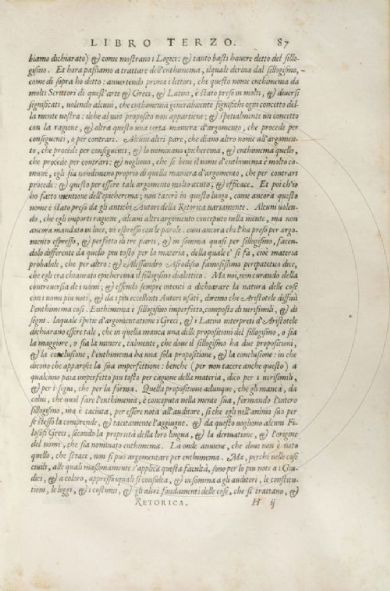 LIBRO TERZO. 87
biamo dichiarato) & come mostrano i Logici: & tanto basti hauere detto del sillo-
gismo. Et hora passiamo a trattare dell'enthimema, ilquale deriua dal sillogismo,
come di sopra ho detto: auuertendo prima i lettori, che questo nome enthimema da
molti Scrittori di quest'arte & Greci, & Latini, è stato preso in molti, & diuersi
significati, uolendo alcuni, che enthimema generalmente significhi ogni concetto del-
la mente nostra: ilche al mio proposito non appartiene; & spetialmente un concetto
con la ragione, & altra questo una certa maniera d'argomento, che procede per
conseguenti, o per contrarii. & Alcuni altri pare, che diano altro nome all'argomen-
to, che procede per conseguenti, & lo nominano & enthimema quello,
che procede per contrarii; & uogliono, che se bene il nome d'enthimema è molto co-
mune, egli sia nondimeno proprio di quella maniera d'argomento, che per contrarii
procede: & questo per essere tale argomento molto acuto, & efficace. Et poi ch'io
ho fatto mentione dell'epicherema; non tacerò in questo luogo, come ancora questo
nome è stato preso da gli antichi Autori della Retorica uariamente. Alcuni uolen-
do, che egli importi ragione, alcuni altri argomento conceputo nella mente, ma non
ancora mandato in luce, ne espresso con le parole: euui ancora che l'ha preso per argo-
mento espresso, & perfetto in tre parti, & in somma quasi per sillogismo, facen-
dolo differente da quello piu tosto per la materia, della quale e' si fa, cioè materia
probabile, che per altro: & Alessandro Afrodiseo famosissimo peripatetico dice,
che egli era chiamato epicherema il sillogismo dialettico. Ma noi, non curando della
controuersia de i nomi, & essendo sempre intenti a dichiarare la natura delle cose
con i nomi piu noti, & da i piu eccellenti Autori usati, diremo che Aristotele diffinì
l'enthimema così. Enthimema è sillogismo imperfetto, composto di uerisimili, & di
segni. laquale spetie d'argomentatione i Greci, & i Latini interpreti d'Aristotele
dichiarano essere tale, che in quella manca una delle propositioni del sillogismo, o sia
la maggiore, o sia la minore, talmente, che doue il sillogismo ha due propositioni,
& la conclusione, l'enthimema ha una sola propositione, & la conclusione: in che
dicono che apparisce la sua imperfettione: benche (per non tacere anche questo) a
qualcuno paia imperfetto piu tosto per cagione della materia, dico per i uerisimili,
& per i segni, che per la forma. Quella propositione adunque, che gli manca, da
colui, che uuol fare l'enthimema, è conceputa nella mente sua, formando l'intero
sillogismo, ma è taciuta, per essere nota all'auditore, si che egli nell'animo suo per
se stesso la comprende, & tacitamente l'aggiugne. & da questo uogliono alcuni Fi-
losofi Greci, secondo la proprietà della lor lingua, & la deriuatione, & l'origine
del nome, che sia nominato enthimema. La onde auuiene, che doue non è noto
quello, che si tace, non si può argomentare per enthimema. Ma, perche nelle cose
ciuili, alle quali massimamente s'applica questa facultà, sono per lo piu note a i Giu-
dici, & a coloro, appresso i quali si consulta, & in somma a gli auditori, le constitu-
tioni, le leggi, & i costumi, & gli altri fondamenti delle cose, che si trattano, &
RETORICA. H ij